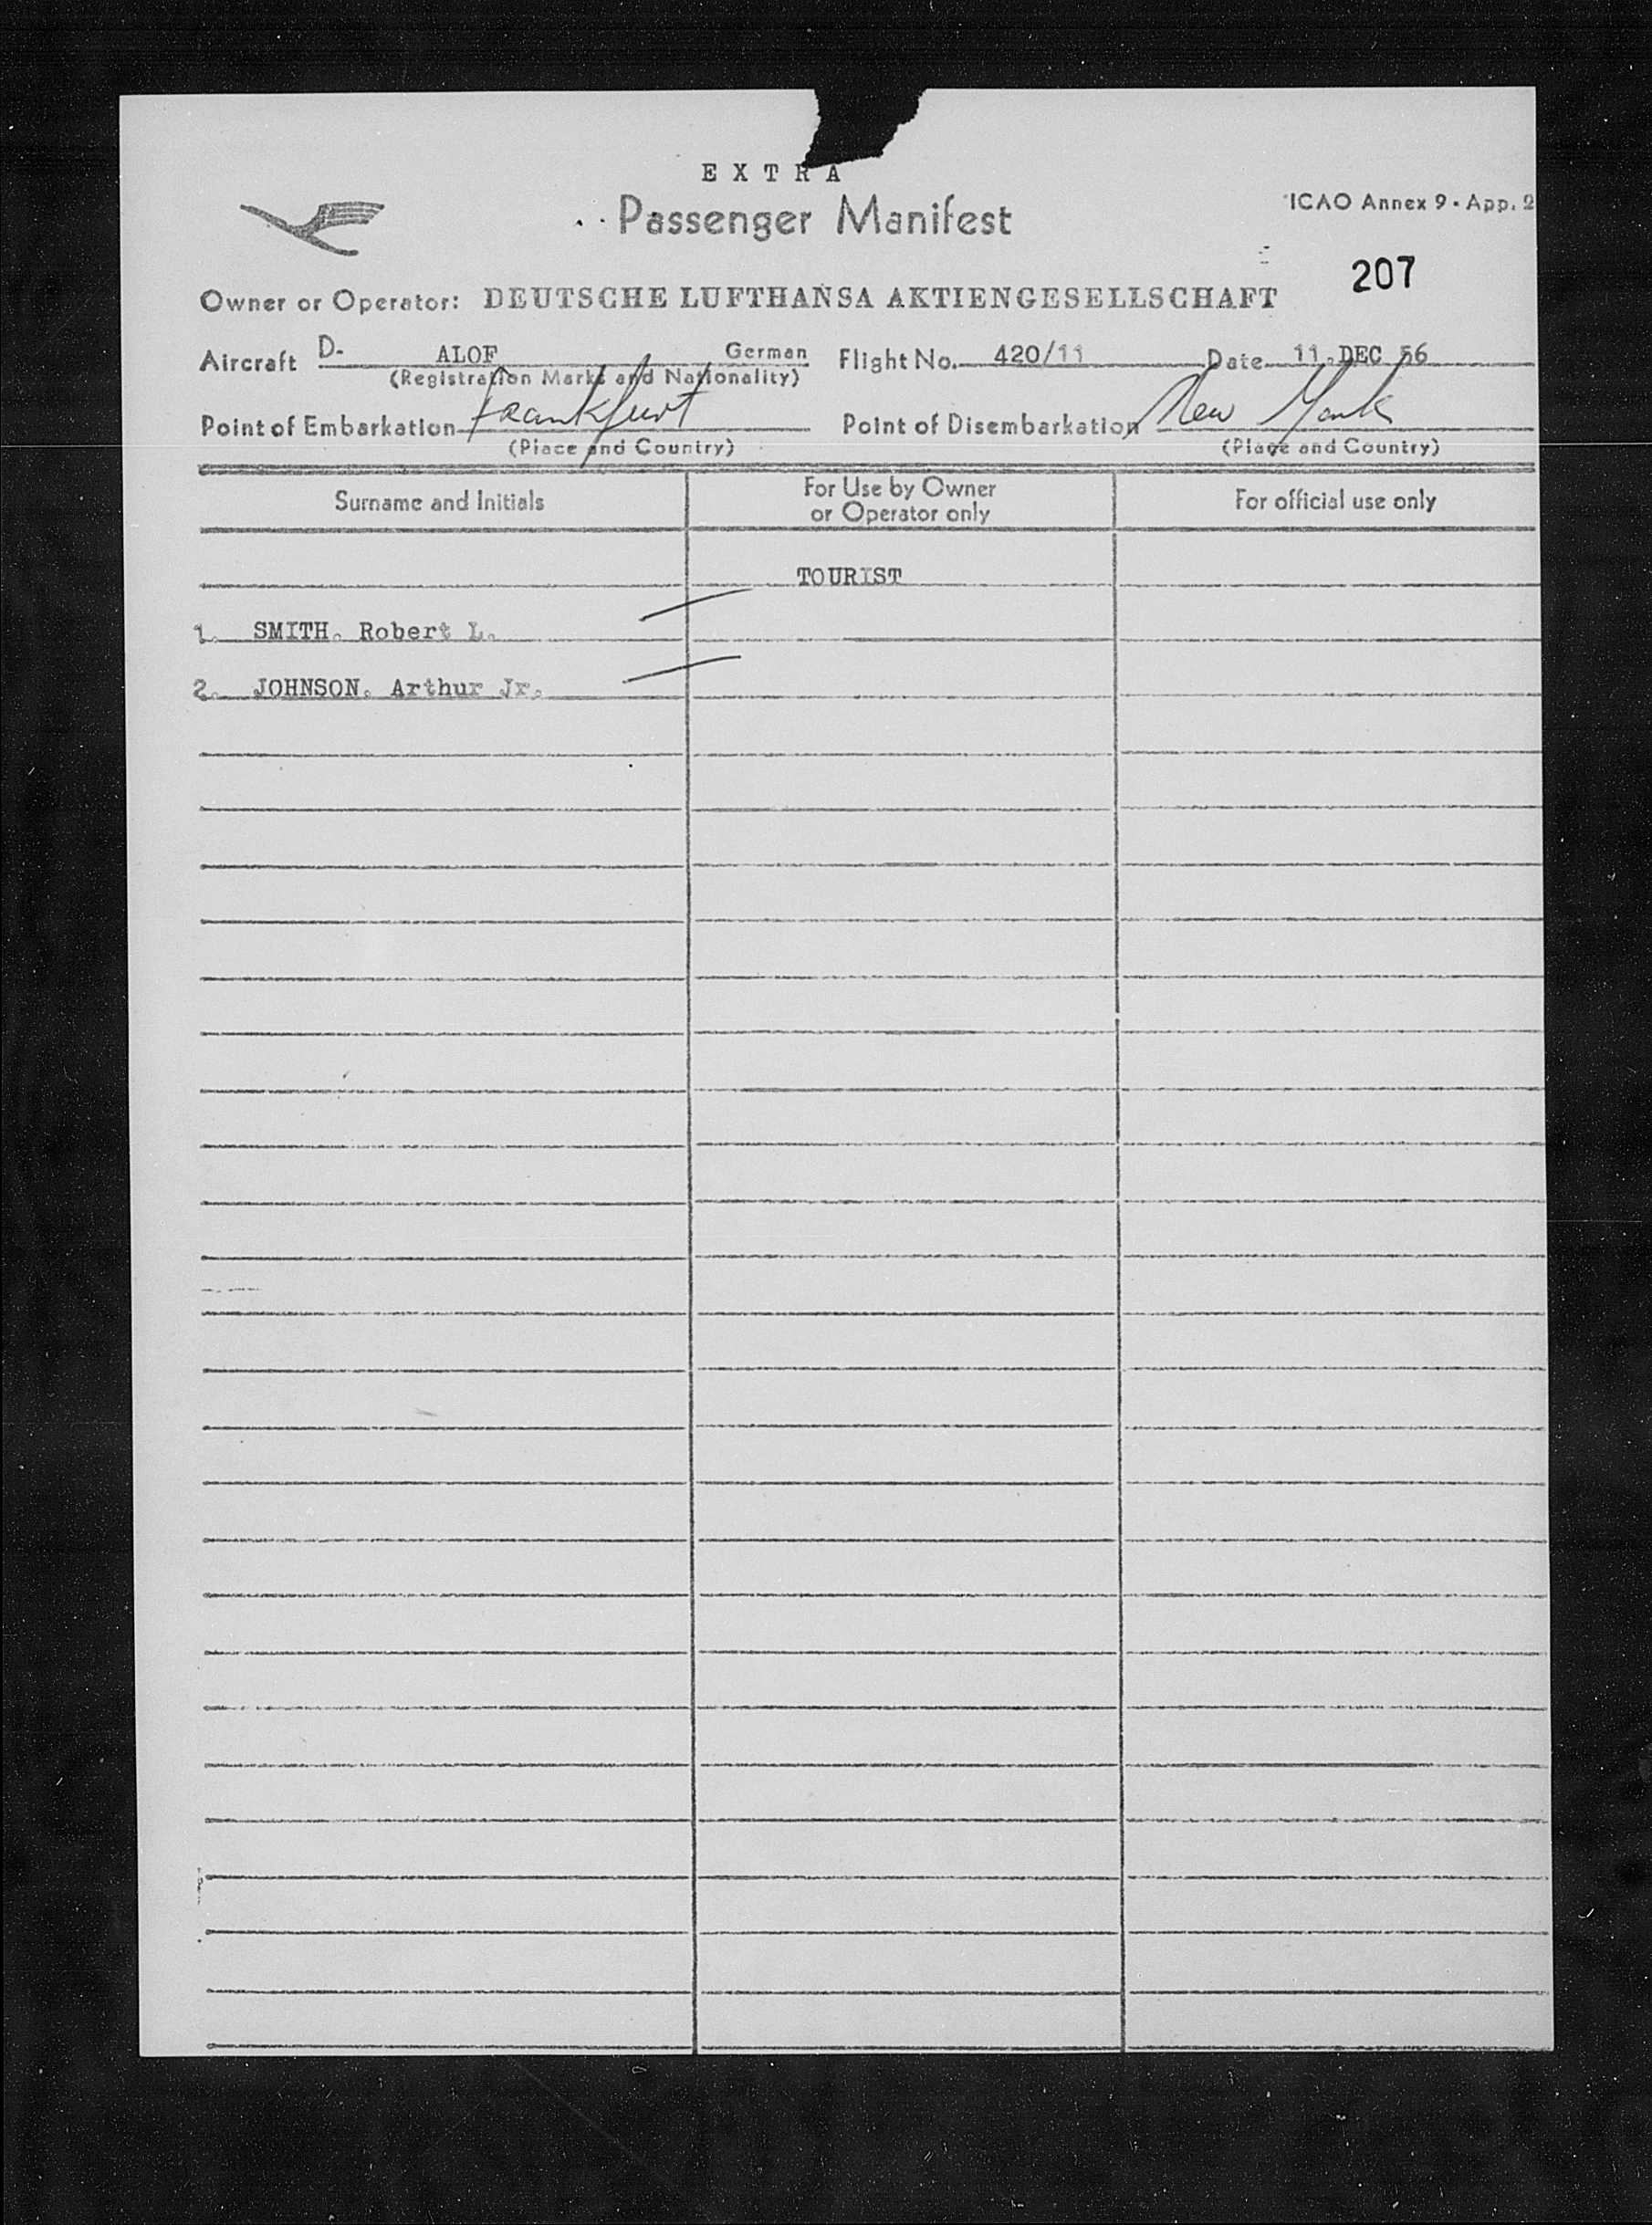 EXTRA
Passenger Manifest
ICAO Annex 9 - App. 2
207
Owner or Operator: DEUTSCHE LUFTHANSA AKTIENGESELLSCHAFT
Aircraft D- ALOF German Flight No. 420/11 Date 11.DEC 56
(Registration Marks and Nationality)
Point of Embarkation Frankfurt Point of Disembarkation New York
(Place and Country) (Place and Country)
Surname and Initials For Use by Owner or Operator only For official use only
TOURIST
1. SMITH. Robert L.
2. JOHNSON. Arthur Jr.